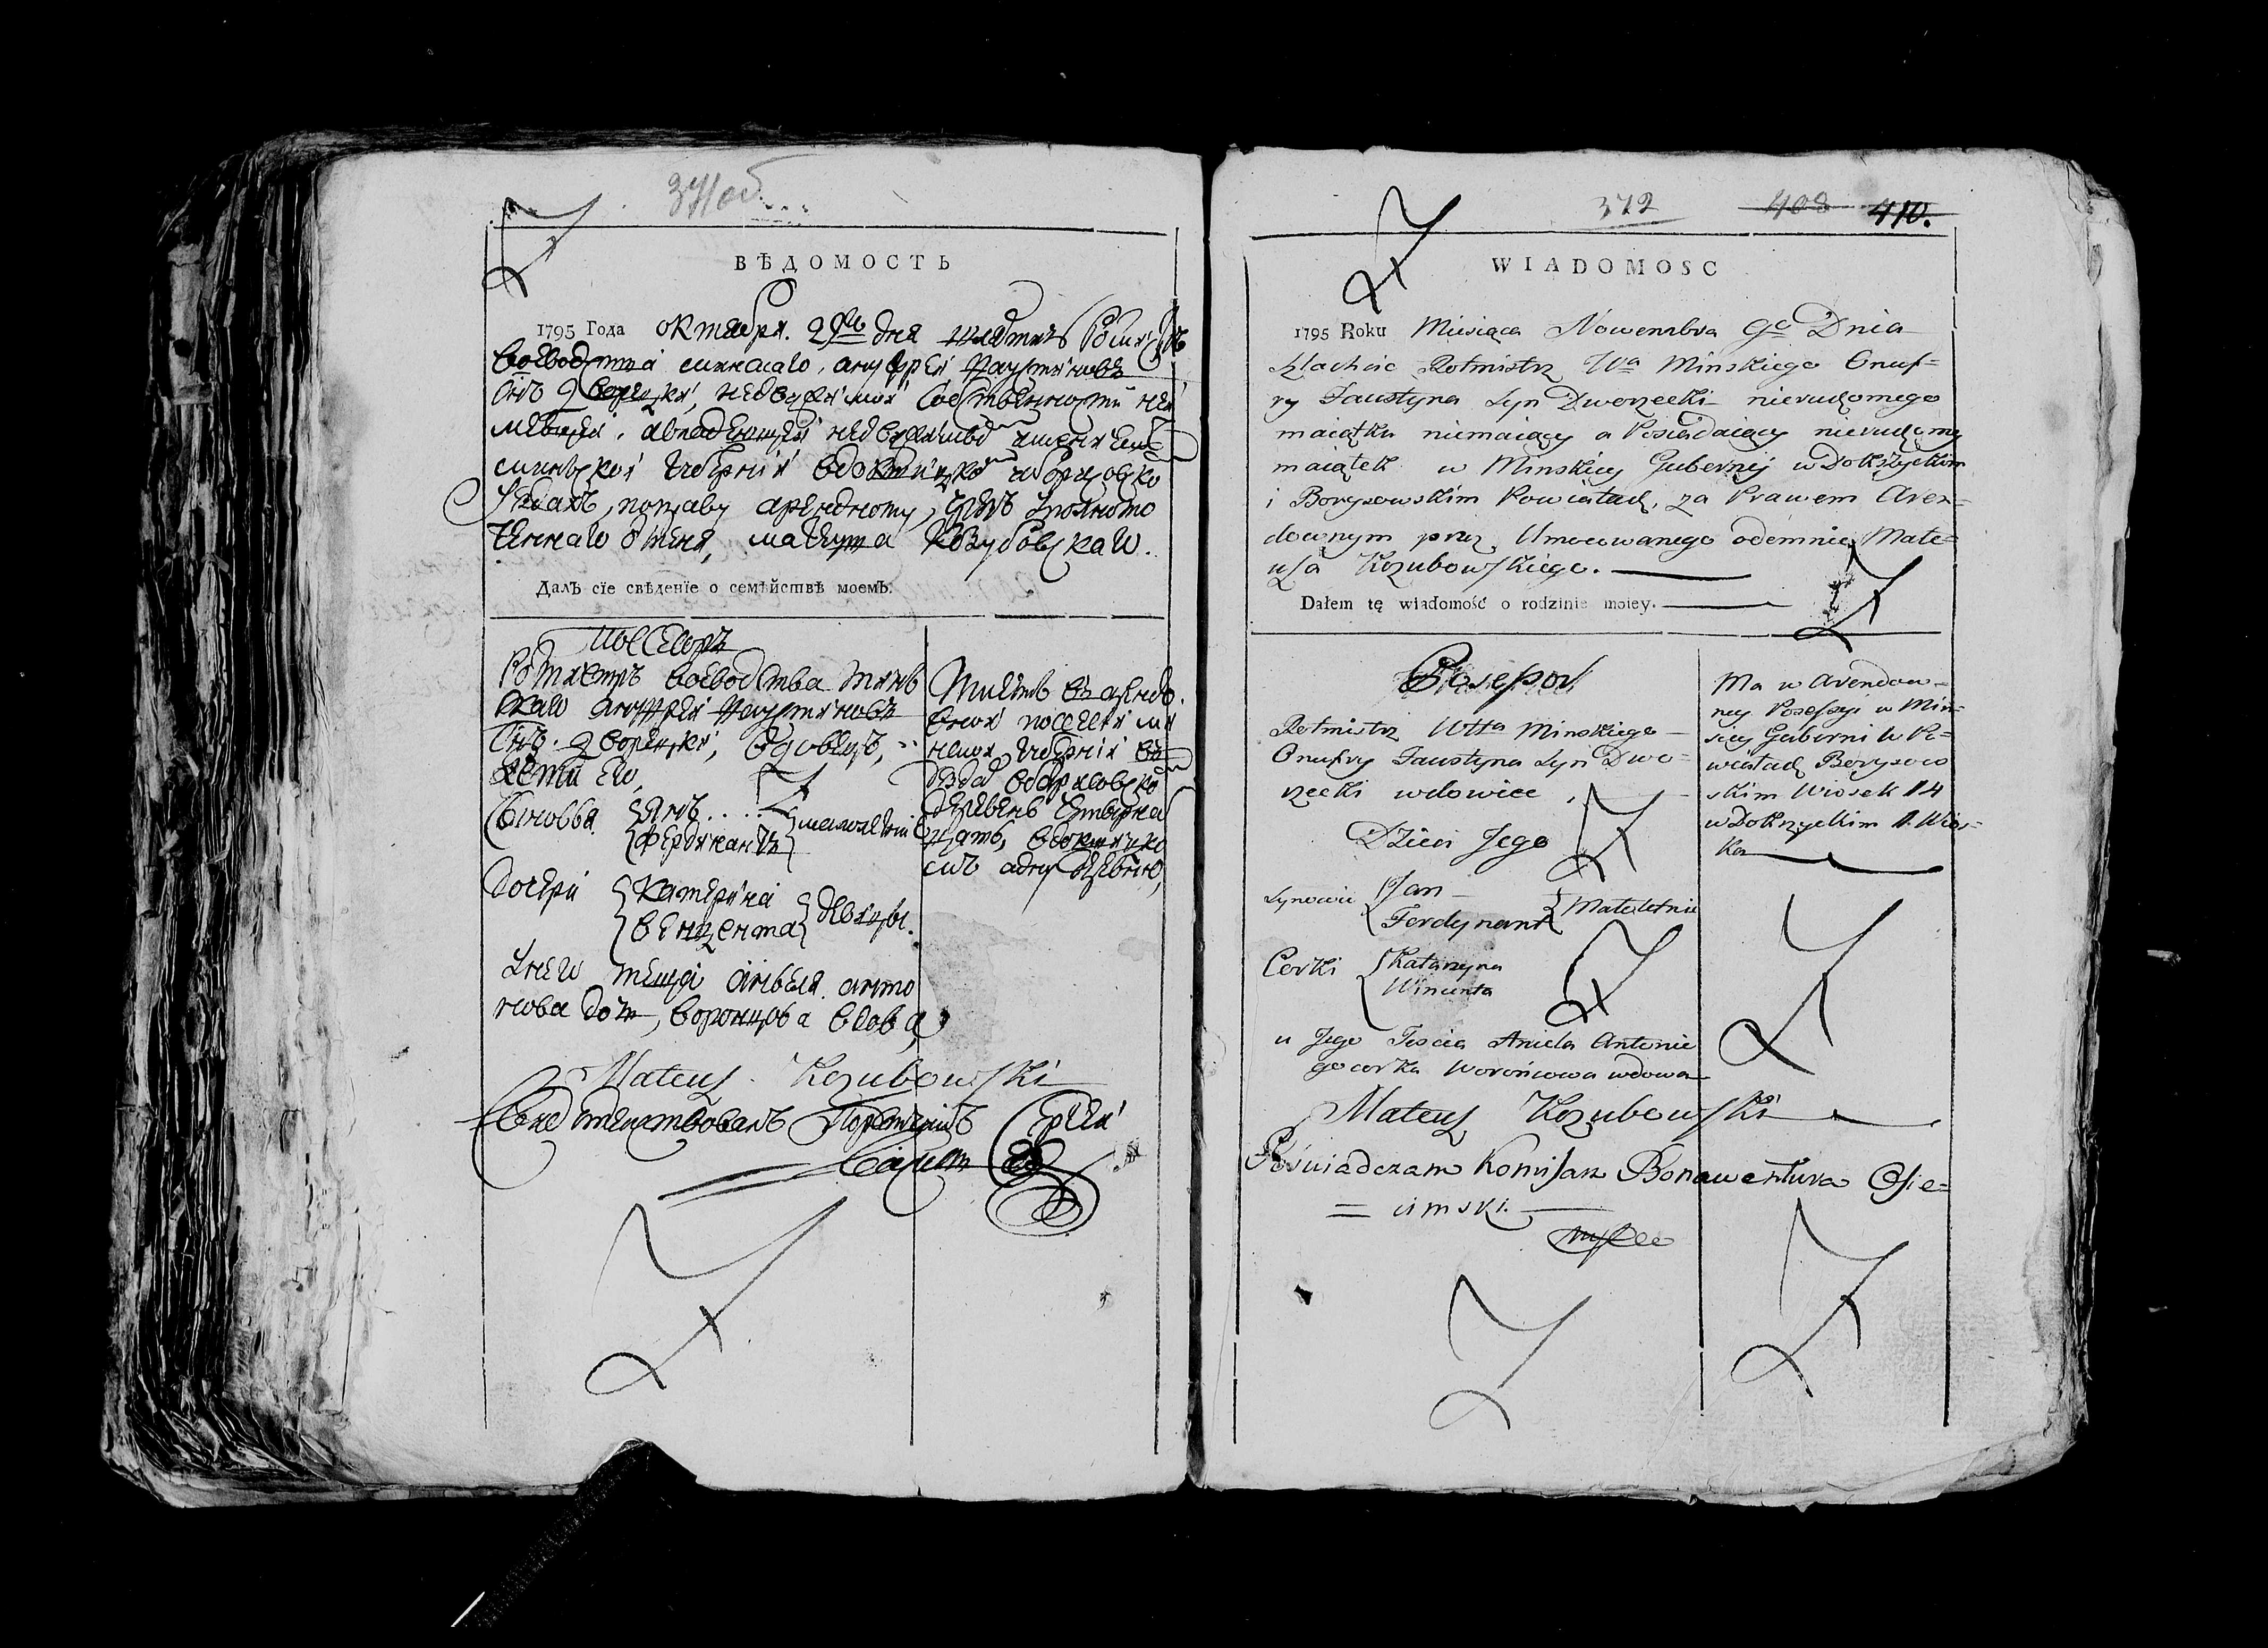 371 об.
ВѢДОМОСТЬ
1795 Года октября 29го дня шляхтичъ Ротмистръ
воеводства минскаго, ануфрей Фаустиновъ
снъ дворецкй, недвижимой собственности неи
меющей, авладеющей недвижимо имение
минъской губернии вдокшицко и борисовско
уездахъ, поправу арендному, чрезъ уполномо
ченнаго отменя, матеуша козубовскаго.
Далъ сїе свѣденїе о семѣйствѣ моемъ.
поссесоръ
Ротмистръ воеводства минъ
скаго ануфрей Фаустиновъ
снъ дворецкй, вдовецъ,
дети ево,
Сыновья янъ
Фердинандъ малолетни
дочери Катерина
Венцента девицы.
унево теща анъеля анто
нова доч, воронцова вдова
Имеетъ въ арендо
вной посессии ми
нской губернии въ
уезда вборисовско
деревень четырна
цать, вдокшицко
мъ адну деревню,
Mateusz Kozubowski
Свидетельствовалъ Порутчикъ Сергей
372 408 410.
WIADOMOSC
1795 Roku Miesiąca Nowembra 9go Dnia
Szlachcic Rotmistrz Wa Minskiego Onuf=
ry Faustyna Syn Dworzecki nieruchomego
maiątku niemaiący a Posiadaiący nieruchomy
maiątek w Minskiey Gubernij w Dokszyckim
i Borysowskim Powiatach, za Prawem Aren=
downym przez Umocowanego odemnie Mate=
usza Kozubowskiego.
Dałem tę wiadomość o rodzinie moiey.
Possesor
Rotmistrz Wtta Minskiego
Onufry Faustyna Syn Dwo=
rzecki wdowiec
Dzieci Jego
Synowie Jan
Ferdynant Małoletnie
Corki Katarzyna
Wincenta
u Jego Teścia Aniela Antonie
go corka Worońcowa wdowa
Ma w Arendow=
ney Posessyi w Min=
skiey Guberni w Po=
wiatach Borysow
skim Wiosek 14
w Dokszyckim 1. Wios=
ka
Mateusz Kozubowski
Poświadczam Komisarz Bonawentura Osie=
= cimski.